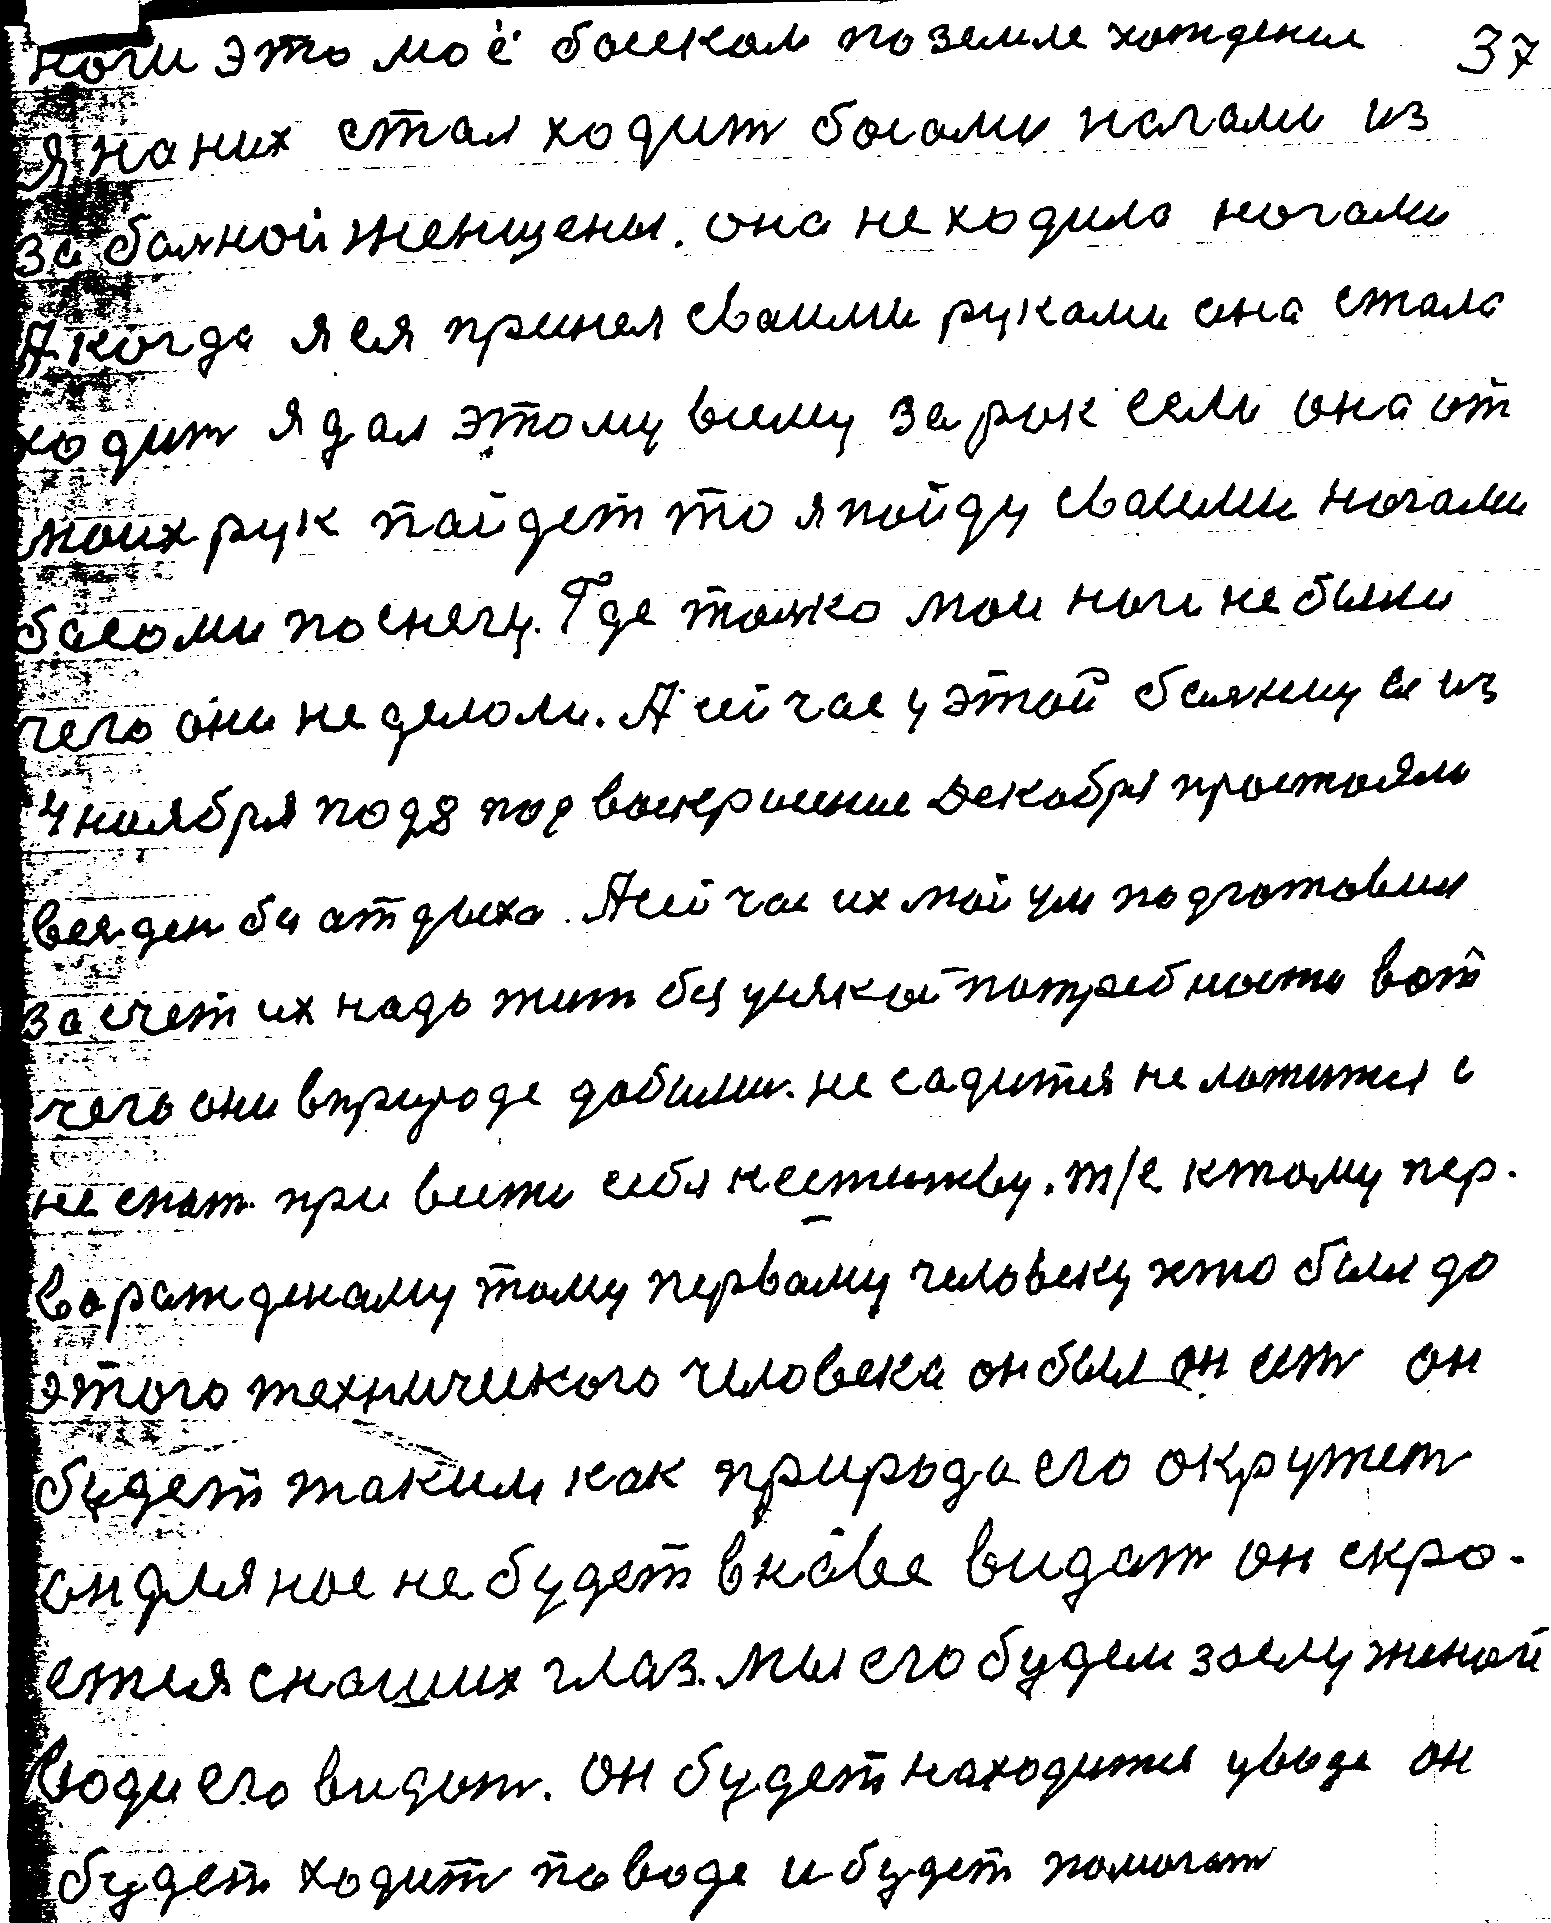 ноги это моё боском по земле хождение 37
я на них стал ходит босыми ногами из
за болной женщены. она не ходила ногами
А когда я ея принял своими руками она стала
ходит я дал этому всему зарок если она от
моих рук пойдет то я пойду своими ногами
босоми по снегу. Где толко мои ноги не были
чего они не делоли. А сичас у этой болянцуси из
4 ноября под 8 под воскрисение Декабря простояли
вся ден би атдыха. А сичас их мой ум подготовил
за счет их надо жит без усякой потребности вот
чего они в природе добилис. не садится не ложится и
не спат при вити себя к еститву. т/е к тому пер.
ворожденаму тому первому человеку хто был до
этого технического человека он был он ест он
будет таким как природа его окружет
он для нас не будет в ново видат он скро.
ется с наших глаз. мы его будем заслуженой
воды его видит. он будет находится у воде он
будет ходит по воде и будет помогат